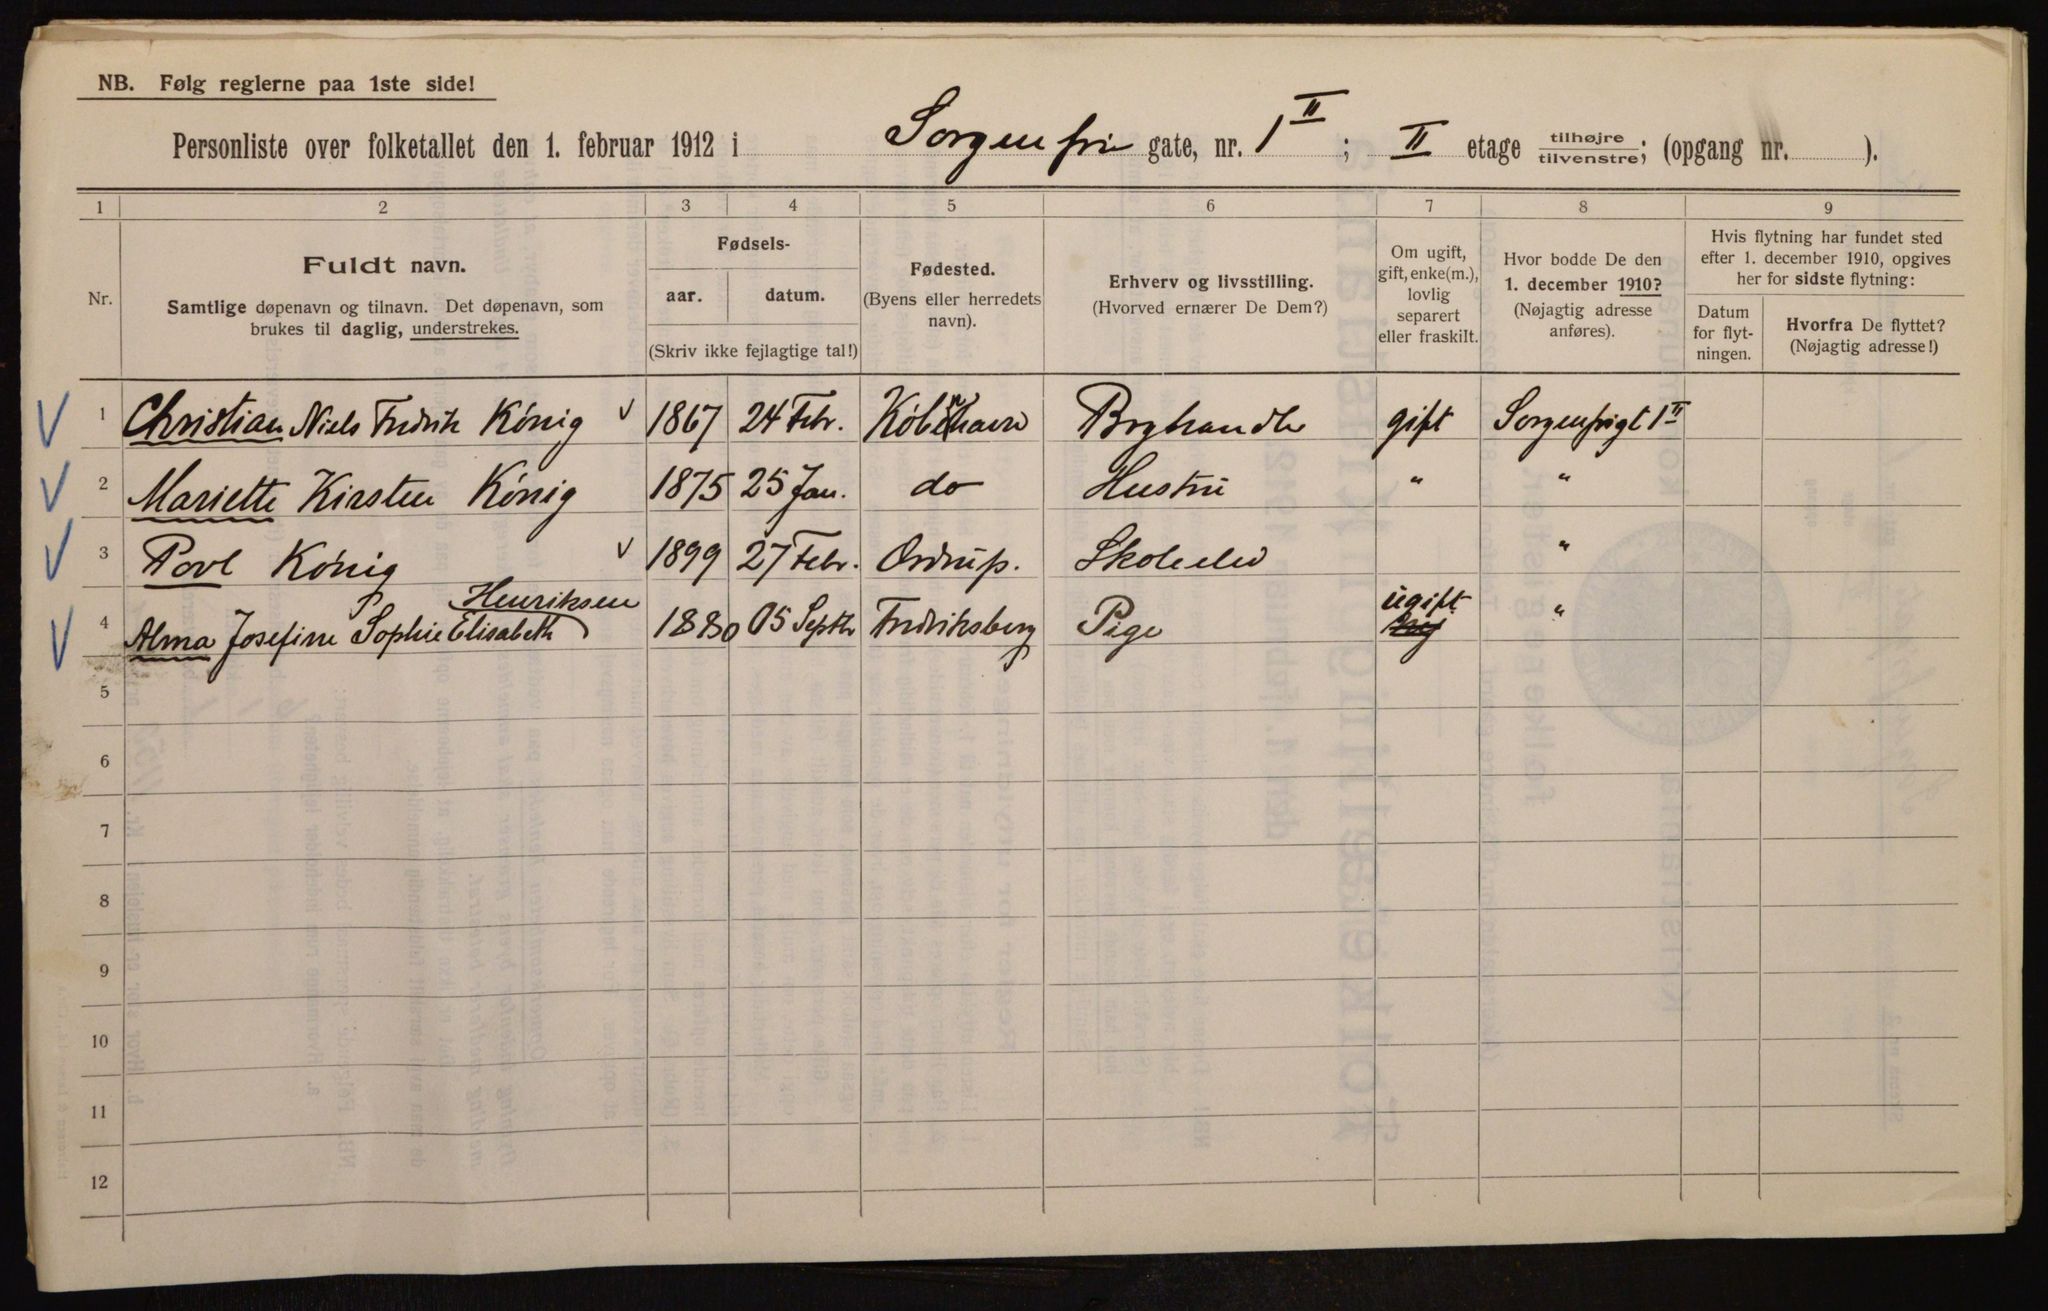 NB. Følg reglerne paa 1ste side!
Personliste over folketallet den 1. februar 1912 i Sorgenfri gate, nr. 1 II ; II etage tilhøjre tilvenstre; (opgang nr. ).
1 2 3 4 5 6 7 8 9
Nr.
Fuldt navn.
Samtlige døpenavn og tilnavn. Det døpenavn, som
brukes til daglig, understrekes.
Fødsels-
aar. datum.
(Skriv ikke fejlagtige tal!)
Fødested.
(Byens eller herredets
navn).
Erhverv og livsstilling.
(Hvorved ernærer De Dem?)
Om ugift,
gift, enke(m.),
lovlig
separert
eller fraskilt.
Hvor bodde De den
1. december 1910?
(Nøjagtig adresse
anføres).
Hvis flytning har fundet sted
efter 1. december 1910, opgives
her for sidste flytning:
Datum
for flyt-
ningen.
Hvorfra De flyttet?
(Nøjagtig adresse!)
1 Christian Niels Fredrik König 1867 24 Febr. Köbenhavn gift Sorgenfrigt 1 II
2 Mariette Kirsten König 1875 25 Jan. do Hustru " "
3 Povl König 1899 27 Febr. Ordrup. Skoleelev "
Henriksen
4 Alma Josefine Sophie Elisabeth 1880 05 Septbr Fredriksberg Pige ugift "
5
6
7
8
9
10
11
12